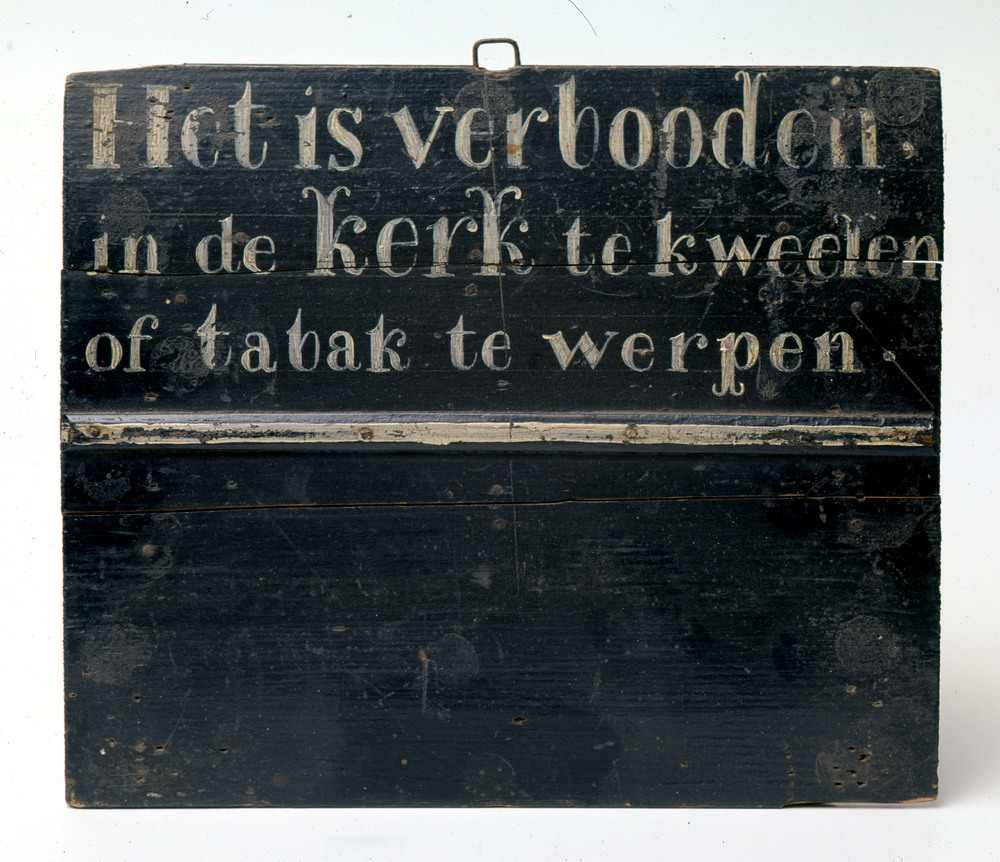 Het is verbooden
in de kerk te kweelen
of tabak te werpen